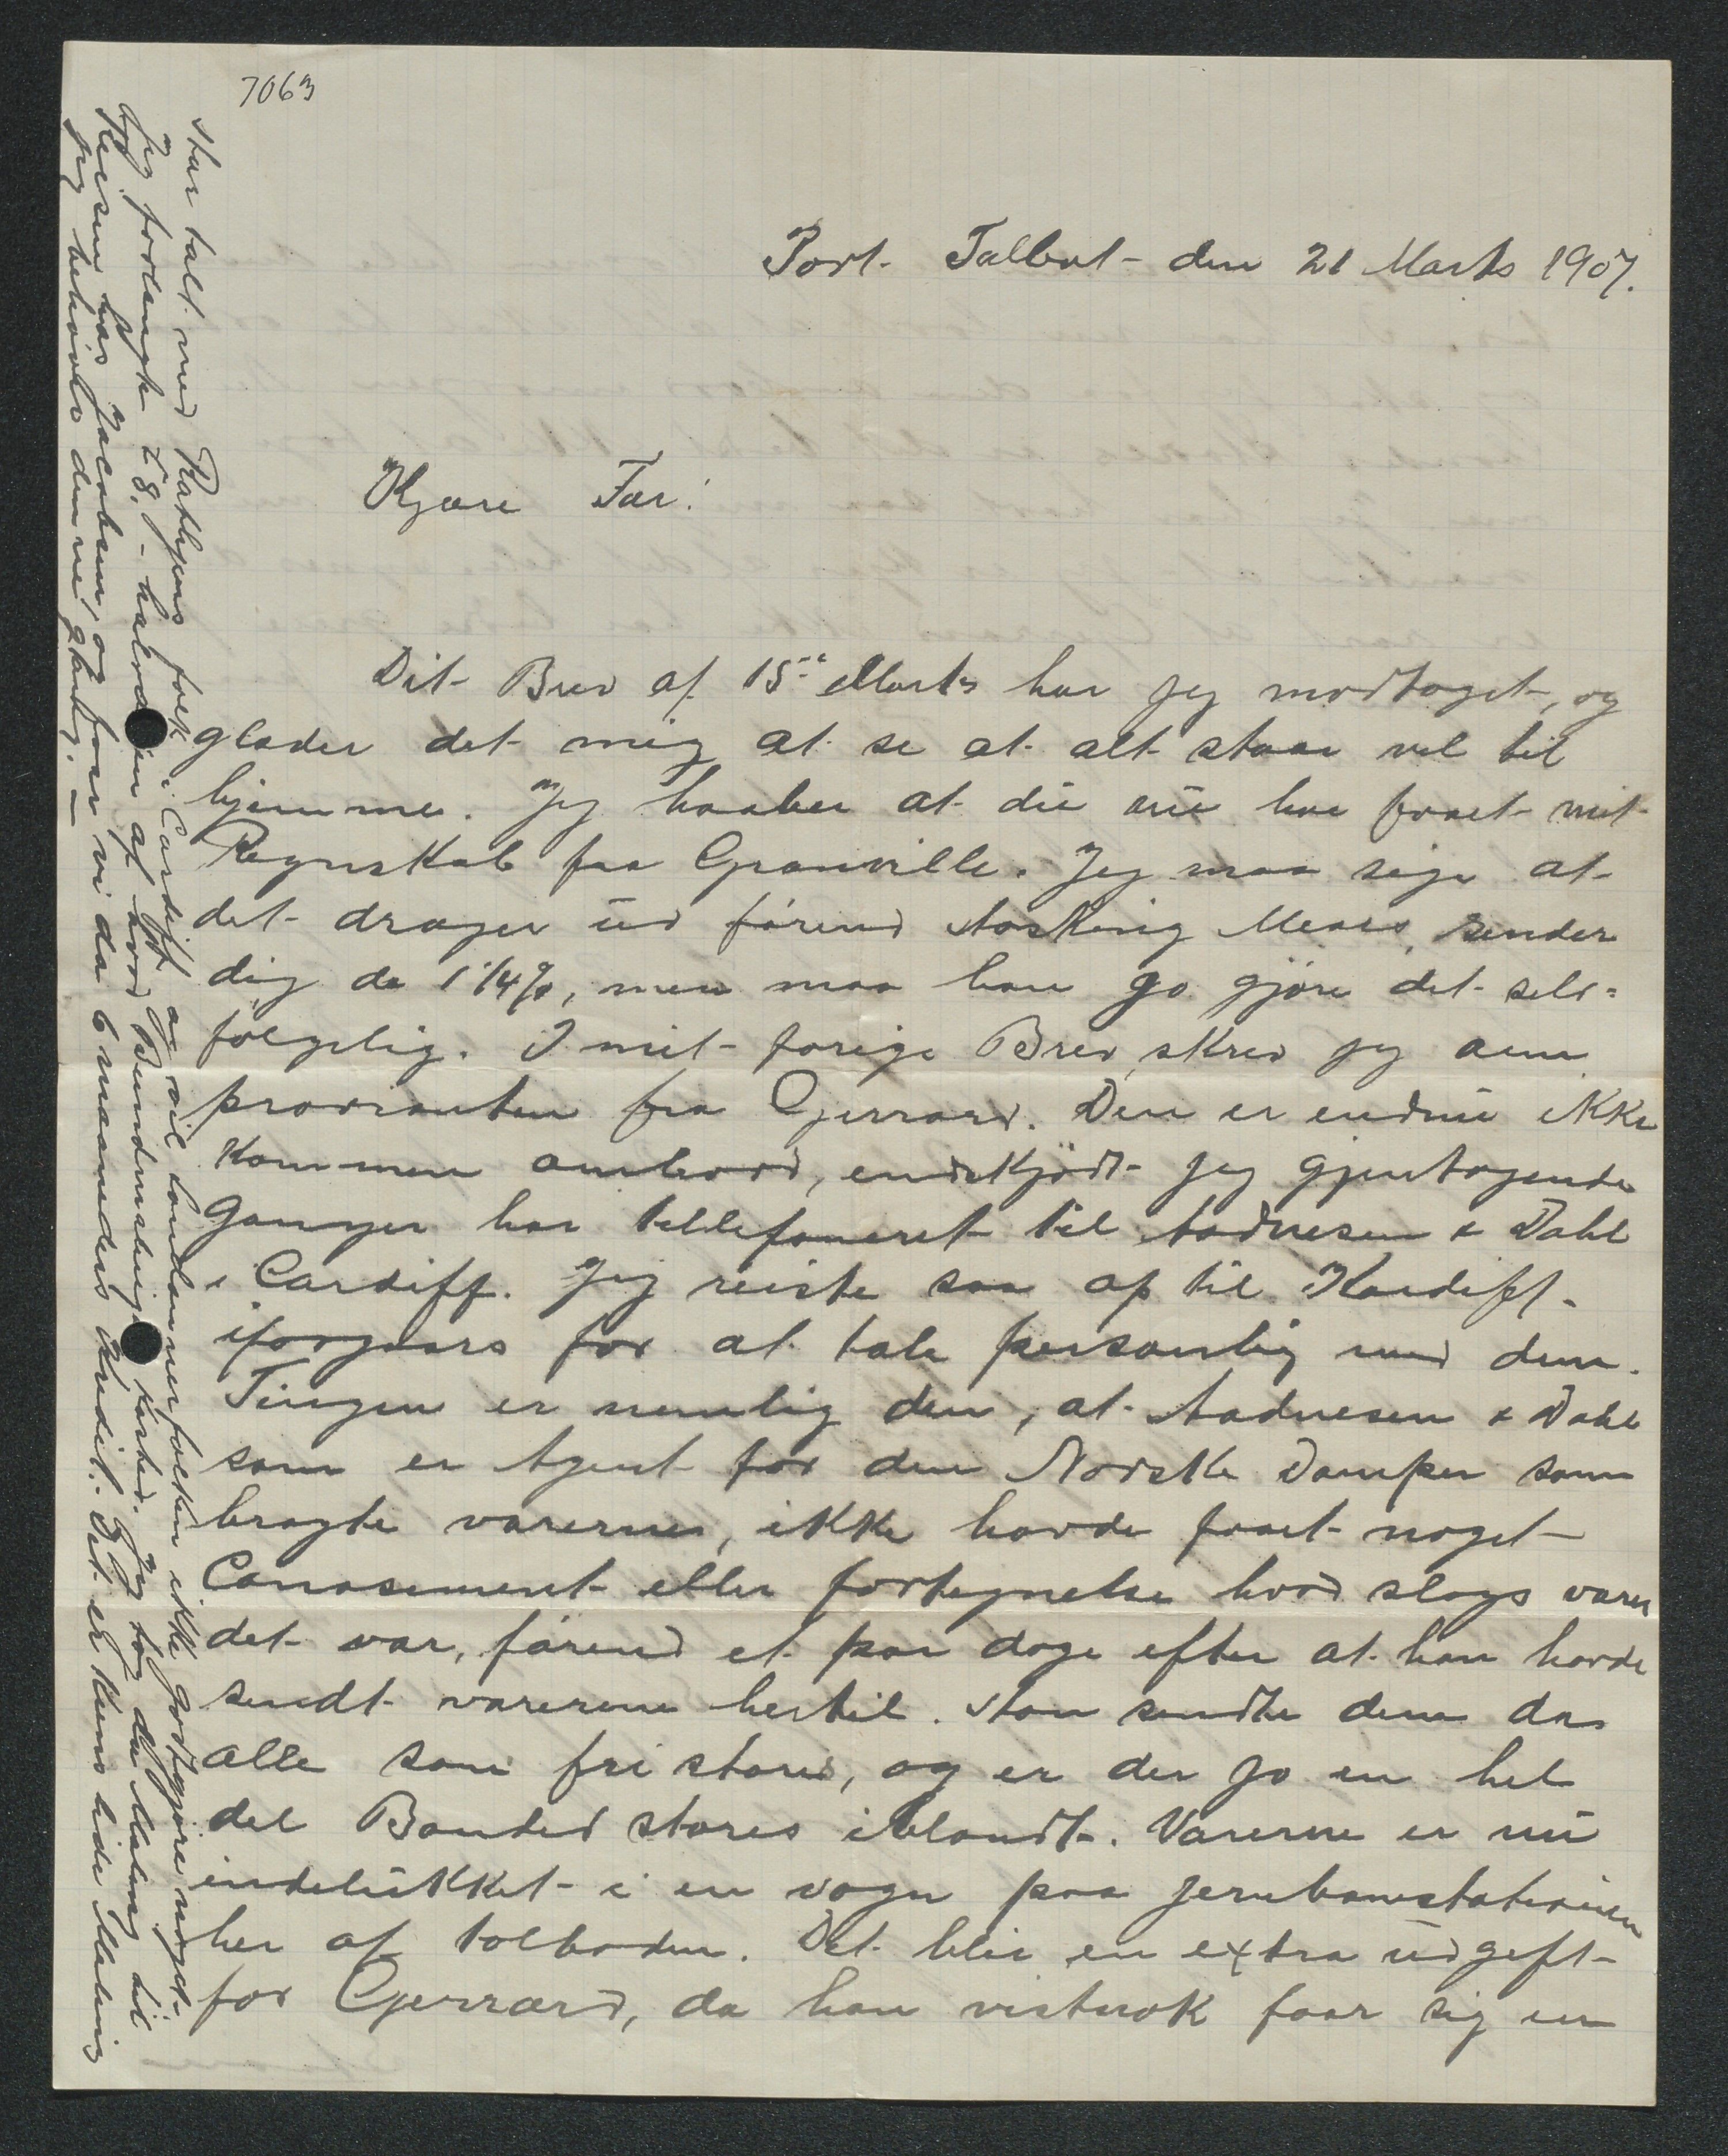 7063
Port Talbot den 21 Marts 1907.
Kjære Far!
Dit Brev af 15de Marts har jeg modtaget, og
glæder det mig at se at alt staar vel til
hjemme. Jeg haaber at du nu har faaet mit
Regnskab fra Granville. Jeg maa sige at
det drager ud førend Hosking Mears, sender
dig de 1 1/4 %, men maa han jo gjøre det selv=
følgelig. I mit forige Brev skrev jeg om
provianten fra Gjerrard. Den er endnu ikke
kommen ombord, endskjødt jeg gjentagende
Ganger har tellefoneret til Aadnesen & Dahl
i Cardiff. Jeg reiste saa op til Kardiff
iforgaars for at tale personlig med dem.
Tingen er nemlig den, at Aadnesen & Dahl
som er Agent for den Norske Damper som
bragte varerne, ikke havde faaet noget
Conosement eller fortegnelse hvad slags varer
det var, førend et par dage efter at han havde
sendt varerene hertil. Han sendte dem da
alle som fri stores, og er der jo en hel
del Bonded stores iblandt. Varerne er nu
indelukket i en vogn paa jernbanestationen
her af tolboden. Det blir en extra udgift
for Gjerrard, da han vistnok faar sig en
har talt med Rathjens folk i Cardiff og vil londonnerfolken ikke godtgjøre noget.
Jeg forlangte £ 8,- halvdelen af hvad Bundmalingen kosted. Jeg tog da Maling til
Reisen hos Jacobsen, og faar vi da 6 maaneders Kredit. Det er kuns lidt Maling
jeg behøver denne gang. —